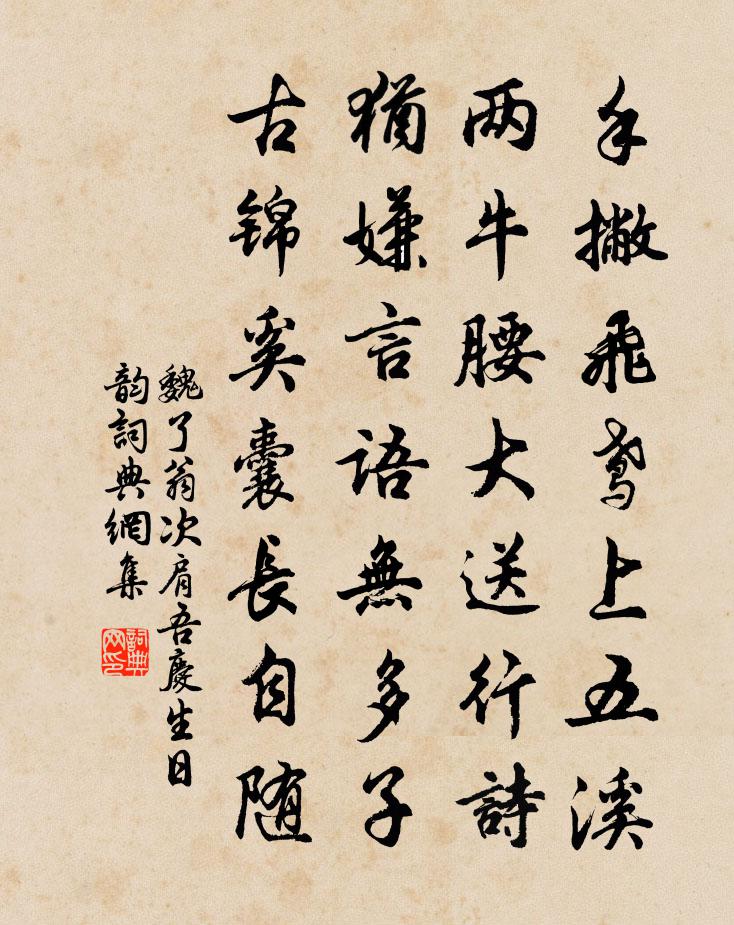 手撇飛鸢上五溪
两牛腰大送行詩
猶嫌言語無多子
古锦奚囊長自随
魏了翁次肩吾慶生日
韵詞典網集
詞典网印